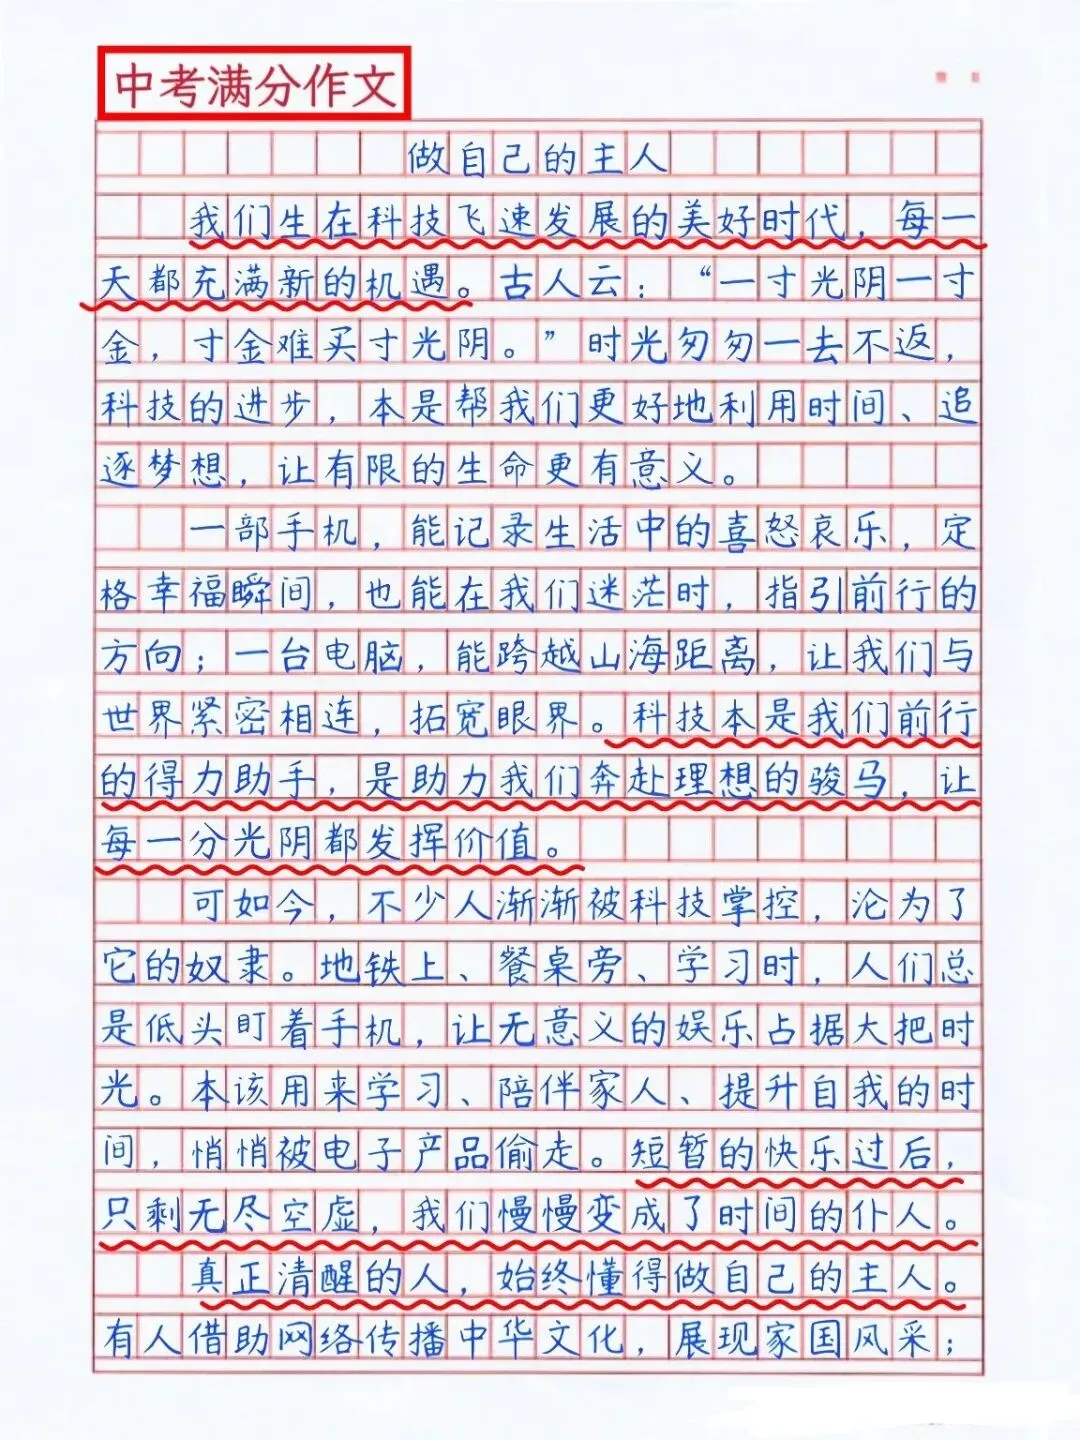 中考满分作文
做自己的主人
我们生在科技飞速发展的美好时代，每一
天都充满新的机遇。古人云：“一寸光阴一寸
金，寸金难买寸光阴。”时光匆匆一去不返，
科技的进步，本是帮我们更好地利用时间、追
逐梦想，让有限的生命更有意义。
一部手机，能记录生活中的喜怒哀乐，定
格幸福瞬间，也能在我们迷茫时，指引前行的
方向；一台电脑，能跨越山海距离，让我们与
世界紧密相连，拓宽眼界。科技本是我们前行
的得力助手，是助力我们奔赴理想的骏马，让
每一分光阴都发挥价值。
可如今，不少人渐渐被科技掌控，沦为了
它的奴隶。地铁上、餐桌旁、学习时，人们总
是低头盯着手机，让无意义的娱乐占据大把时
光。本该用来学习、陪伴家人、提升自我的时
间，悄悄被电子产品偷走。短暂的快乐过后，
只剩无尽空虚，我们慢慢变成了时间的仆人。
真正清醒的人，始终懂得做自己的主人。
有人借助网络传播中华文化，展现家国风采；